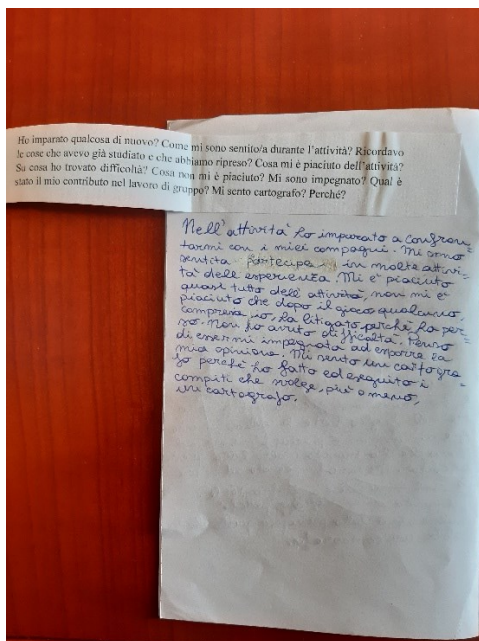 Ho imparato qualcosa di nuovo? Come mi sono sentito/a durante l'attività? Ricordavo
le cose che avevo già studiato e che abbiamo ripreso? Cosa mi è piaciuto dell'attività?
Su cosa ho trovato difficoltà? Cosa non mi è piaciuto? Mi sono impegnato? Qual è
stato il mio contributo nel lavoro di gruppo? Mi sento cartografo? Perché?
Nell'attività ho imparato a confron
tarmi con i miei compagni. Mi sono
sentita partecipe in molte attivi-
tà dell'esperienza. Mi è piaciuto
quasi tutto dell'attività, non mi è
piaciuto che dopo il gioco qualcuno,
compresa io, ha litigato perché ha per
so. Non ho avuto difficoltà. Penso
di essermi impegnata ad esporre la
mia opinione. Mi sento un cartogra-
fo perché ho fatto ed eseguito i
compiti che svolge, più o meno,
un cartografo.